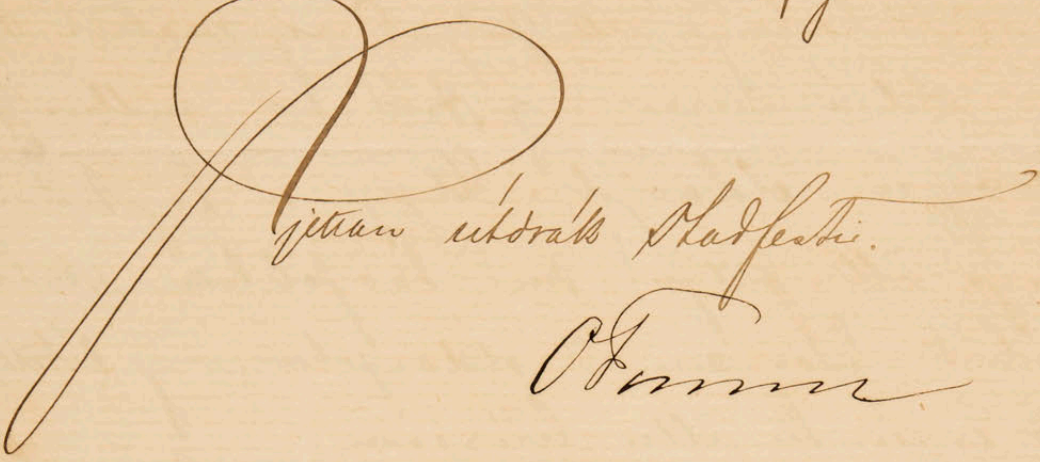 Rjettan útdrátt staðfestir.
OFinsen